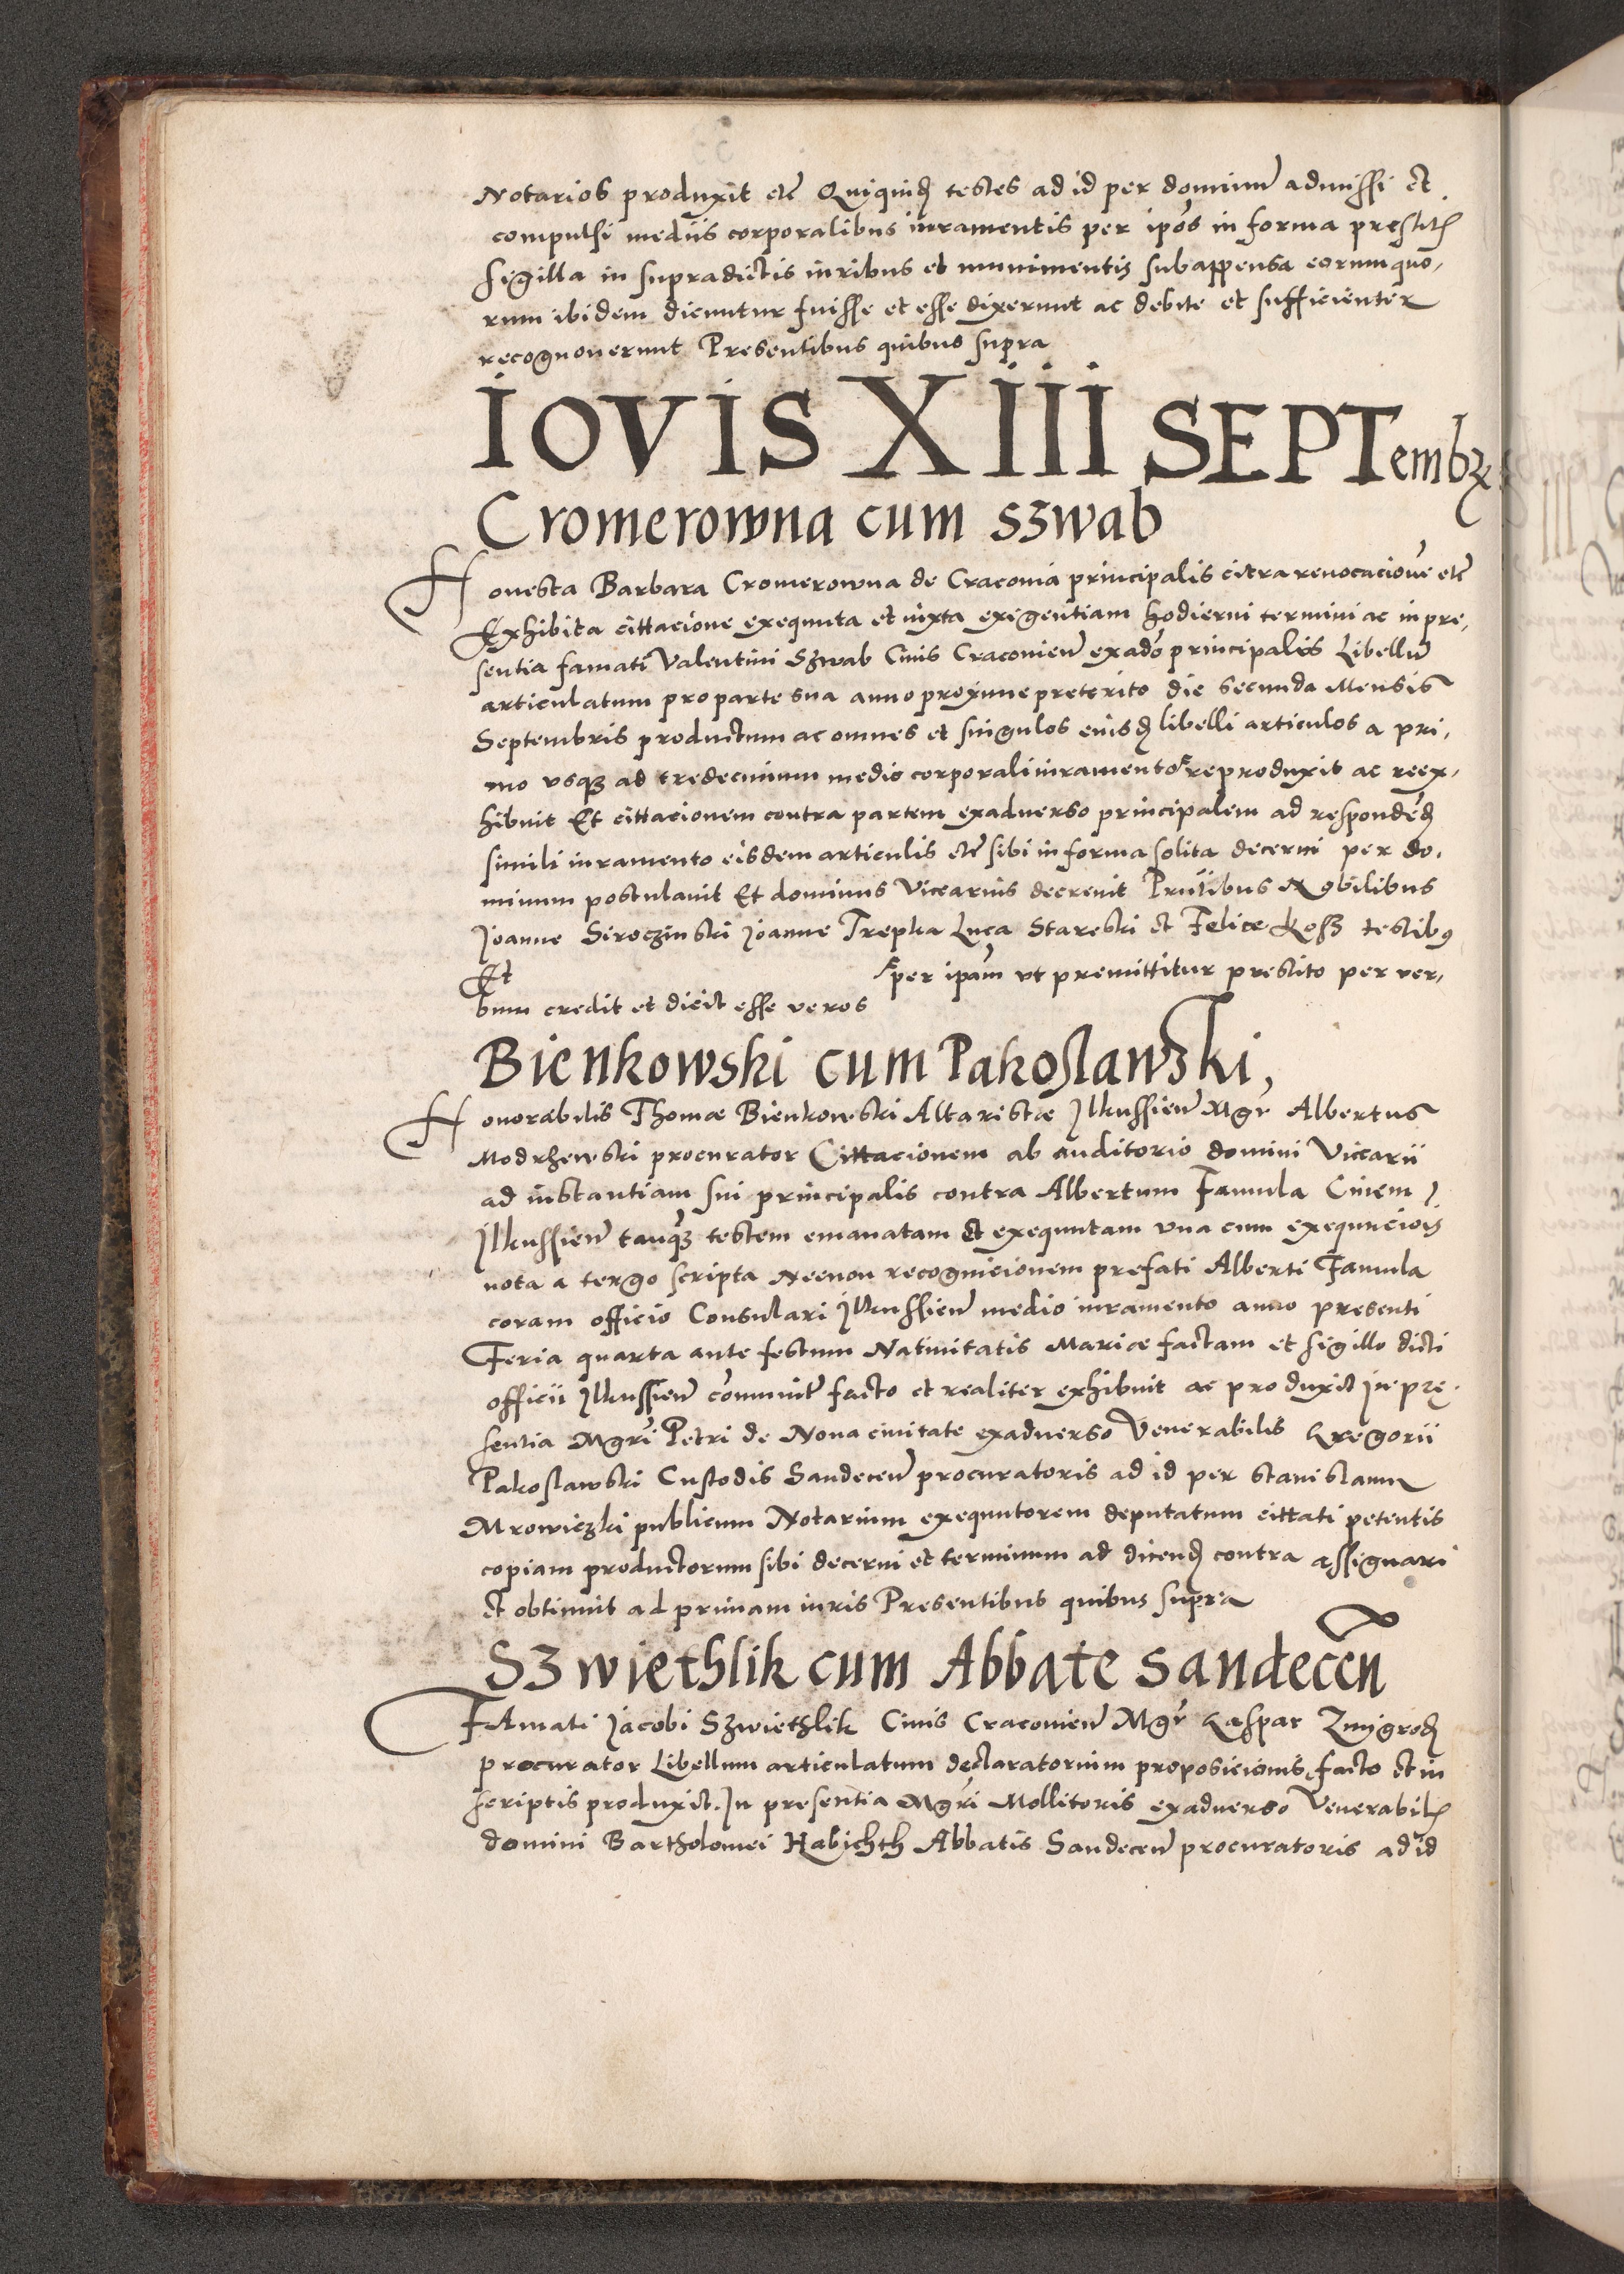 Notarios produxit etc Quiquid testes ad id per dominum admissi et
compulsi mediis corporalibus iuramentis per ipos in forma prestitis
sigilla in supradictis iuribus et munimentis subappensa eorum quo,
rum ibidem dicuntur fuisse et esse dixerunt ac debite et sufficienter
recognoverunt Presentibus quibus supra
IOVIS XIII SEPTembr
Cromerowna cum Szwab
Honesta Barbara Cromerowna de Craconia principalis citra revocacione etc
Exhibita cittacione exequuta et iuxta exigentiam hodierni termini ac in pre,
sentia famati Valentini Szwab Civis Cracovien exadso principalis Libellu
articulatum pro parte sua anno proxime preterito die secunda Mensis
Septembris productum ac omnes et singulos eiusd libelli articulos a pri,
mo usque ad tredecimum medio corporali iuramento reproduxit ac reex,
hibuit Et cittacionem contra partem exadverso principalem ad respondend
simili iuramento eisdem articulis etc sibi in forma solita decerni per do,
minum postulavit Et dominus Vicearius decrevit Prntibus Nobilibus
Joanne Siroczinski Joanne Trepka Luca Stareski et Felice Koss testibus
Et per ipam ut premittitur prestito per ver,
bum credit et dicit esse veros
Bienkowski cum Pakoslawski,
Honorabilis Thomae Bienkowski Altaristae Jlkussien Mgr Albertus
Modrhewski procurator Cittacionem ab auditorio domini Viccarii
ad instantiam sui principalis contra Albertum Famula Civem
Jlkussien tanquam testem emanatam et exequutam una cum exequuciois
nota a tergo scripta Necnon recognicionem prefati Alberti Famula
coram officio Consulari Jlkussien medio iuramento anno presenti
Feria quarta ante festum Nativitatis Mariae factam et sigillo dicti
officii Jlkussien comuniter facto et realiter exhibuit ac produxit in pre
sentia Mgri Petri de Nova civitate exadverso Venerabilis Gregorii
Pakoslawski Custodis Sandecen procuratoris ad id per Stanislaum
Mrowiczki publicum Notarium exequutorem deputatum cittati petentis
copiam productorum sibi decerni et terminum ad dicend contra assignari
et obtinuit ad primam iuris Presentibus quibus supra
Szwiethlik cum Abbate Sandecen
FAmati Jacobi Szwiethlik Civis Cracovien Mgr Gaspar Zmigrod
procurator Libellum articulatum declaratorium proposicionis facto et in
scriptis produxit. In presentia Mgri Mollitoris exadverso Venerabilis
domini Bartholomei Habichth Abbatis Sandecen procuratoris ad id